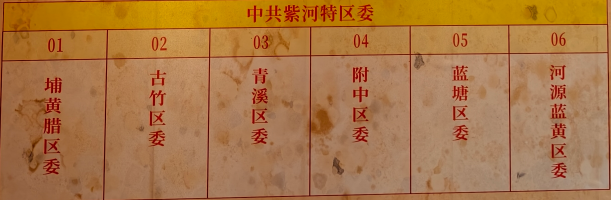 中共紫河特区委
01
02
03
04
05
06
埔黄腊区委
古竹区委
青溪区委
附中区委
蓝塘区委
河源蓝黄区委